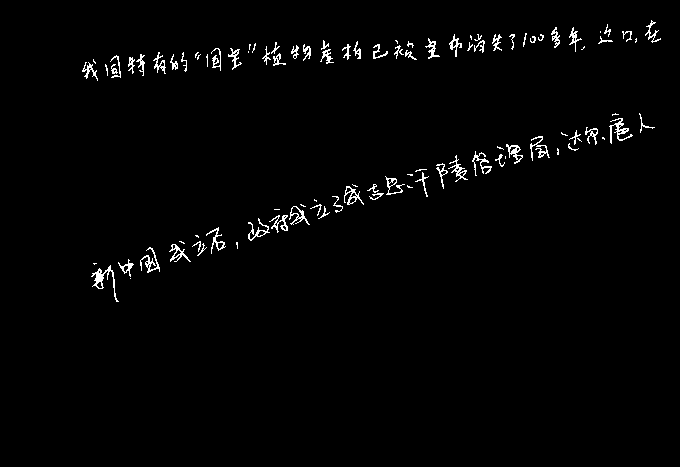 我国特有的“国宝”植物崖柏已被宣布消失了100多年，近日，在
新中国成立后，政府成立了成吉思汗陵管理局，达尔扈人